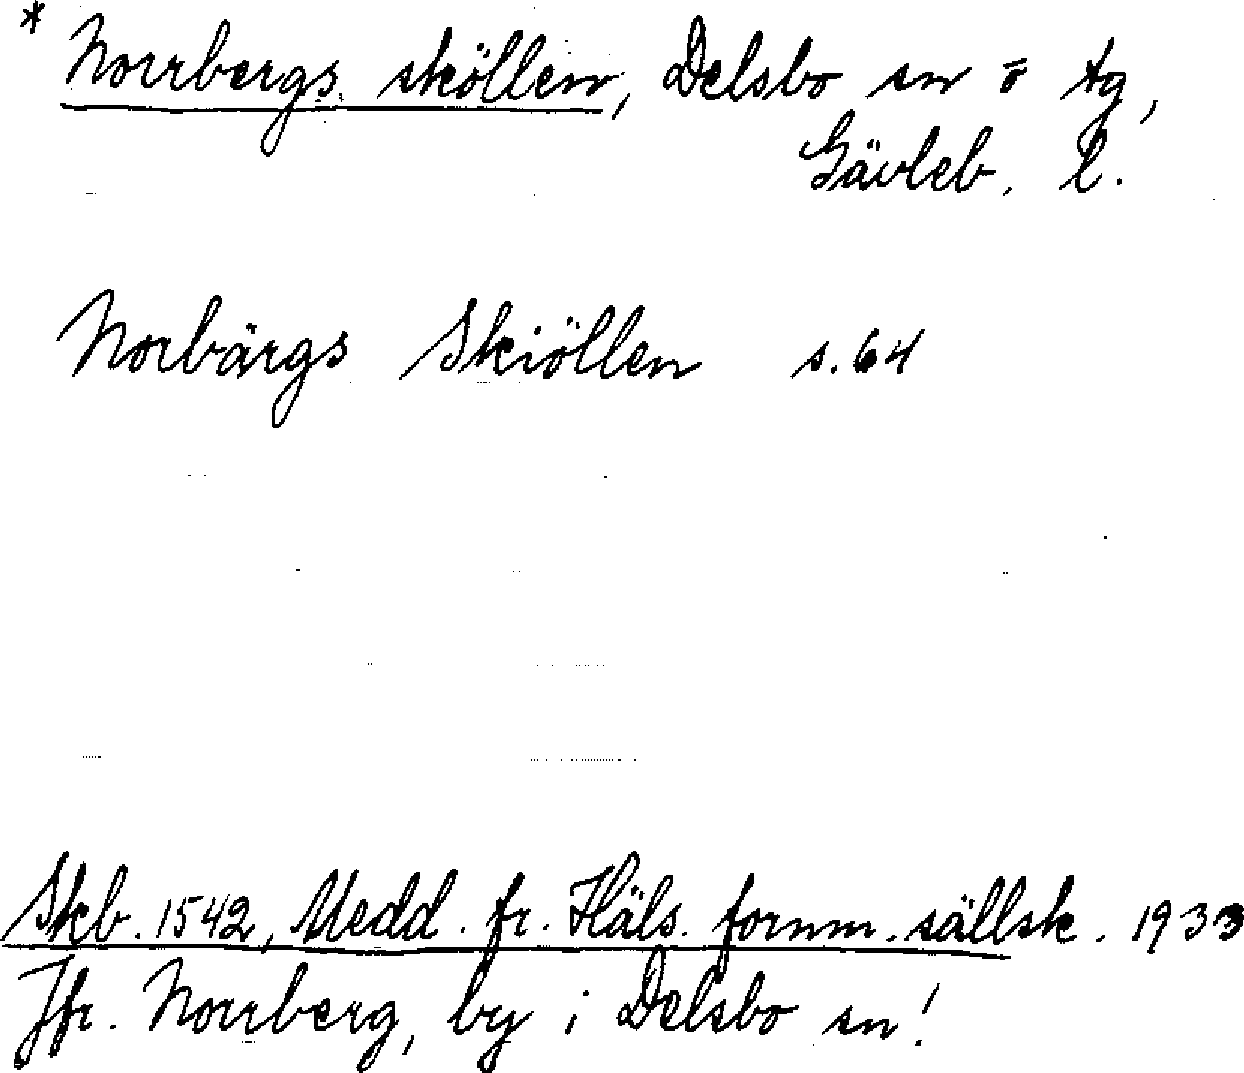 * Norrbergs sköllen, Delsbo sn o tg,
Gävleb. l.
Norbärgs Skiöllen s. 64
Skb. 1542, Medd. fr. Häls. fornm. sällsk. 1933
Jfr. Norrberg, by i Delsbo sn!